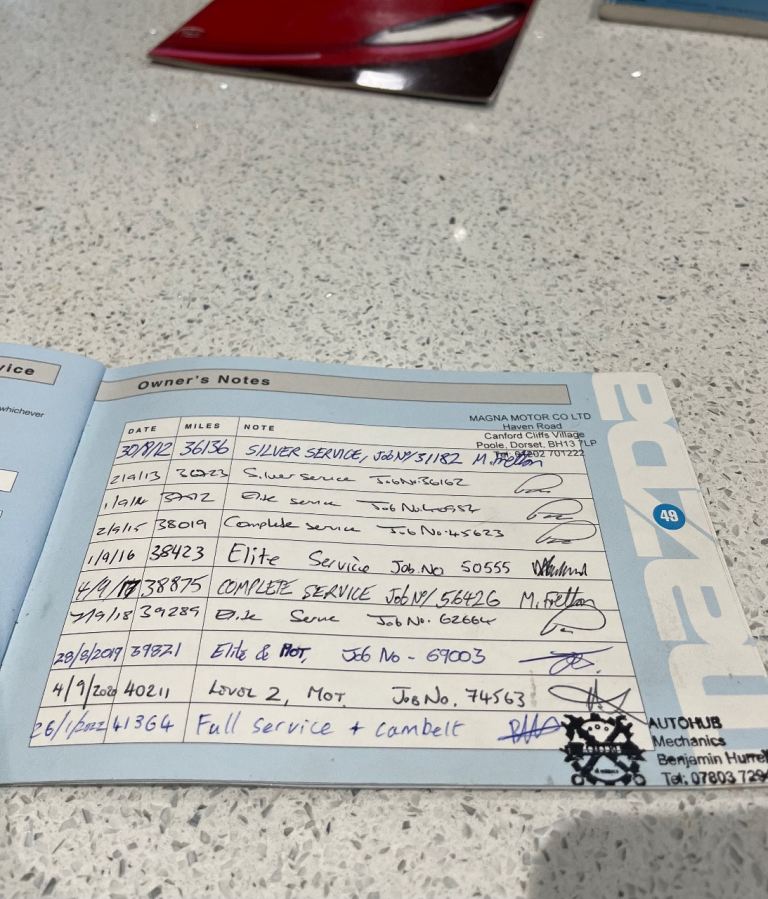 vice
whichever
Owner's Notes
MAGNA MOTOR CO LTD
Haven Road
Canford Cliffs Village
Poole, Dorset, BH13 7LP
Tel. 01202 701222
DATE MILES NOTE
30/8/12 36136 SILVER SERVICE, Job No/31182 M.Fretton
2/9/13 Silver service Job No:36162
Elise service Job No:
2/9/15 38019 Complete service Job No:45623
1/9/16 38423 Elite Service Job.No 50555
4/9/17 38875 COMPLETE SERVICE Job No/56426 M.Fretton
7/9/18 39289 Job No. 62664
28/8/2019 39821 Elite & MOT, Job No - 69003
4/9/2020 40211 Level 2, MOT. Job No. 74563
26/1/2022 41364 Full service + cambelt
mazda
49
AUTOHUB
Mechanics
Benjamin Hurre
Tel: 07803 729